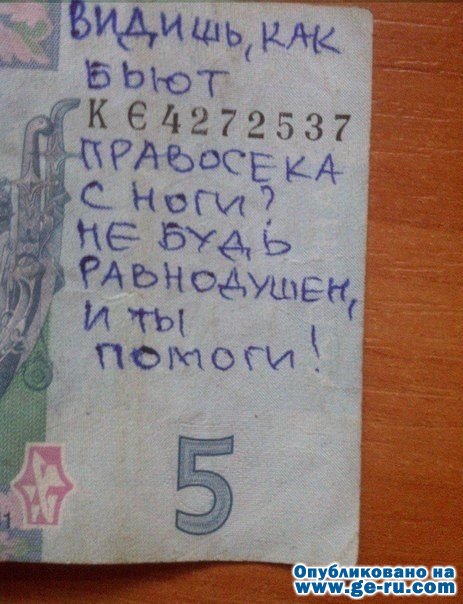 ВИДИШЬ, КАК
БЬЮТ
КЄ4272537
ПРАВОСЕКА
С НОГИ?
НЕ БУДЬ
РАВНОДУШЕН,
И ТЫ
ПОМОГИ!
5
1
Опубликовано на
www.ge-ru.com